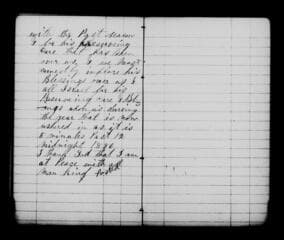 with the Past season
& for his preserving
care that has been
over us, & we
earnestly implore his
Blessings over us &
all Israel for his
Preserving care & Bles-
ings upon us during
the year that is now
ushered in as it is
5 minutes Past 12
midnight
I thank God that I am
at Peace with all
man kind